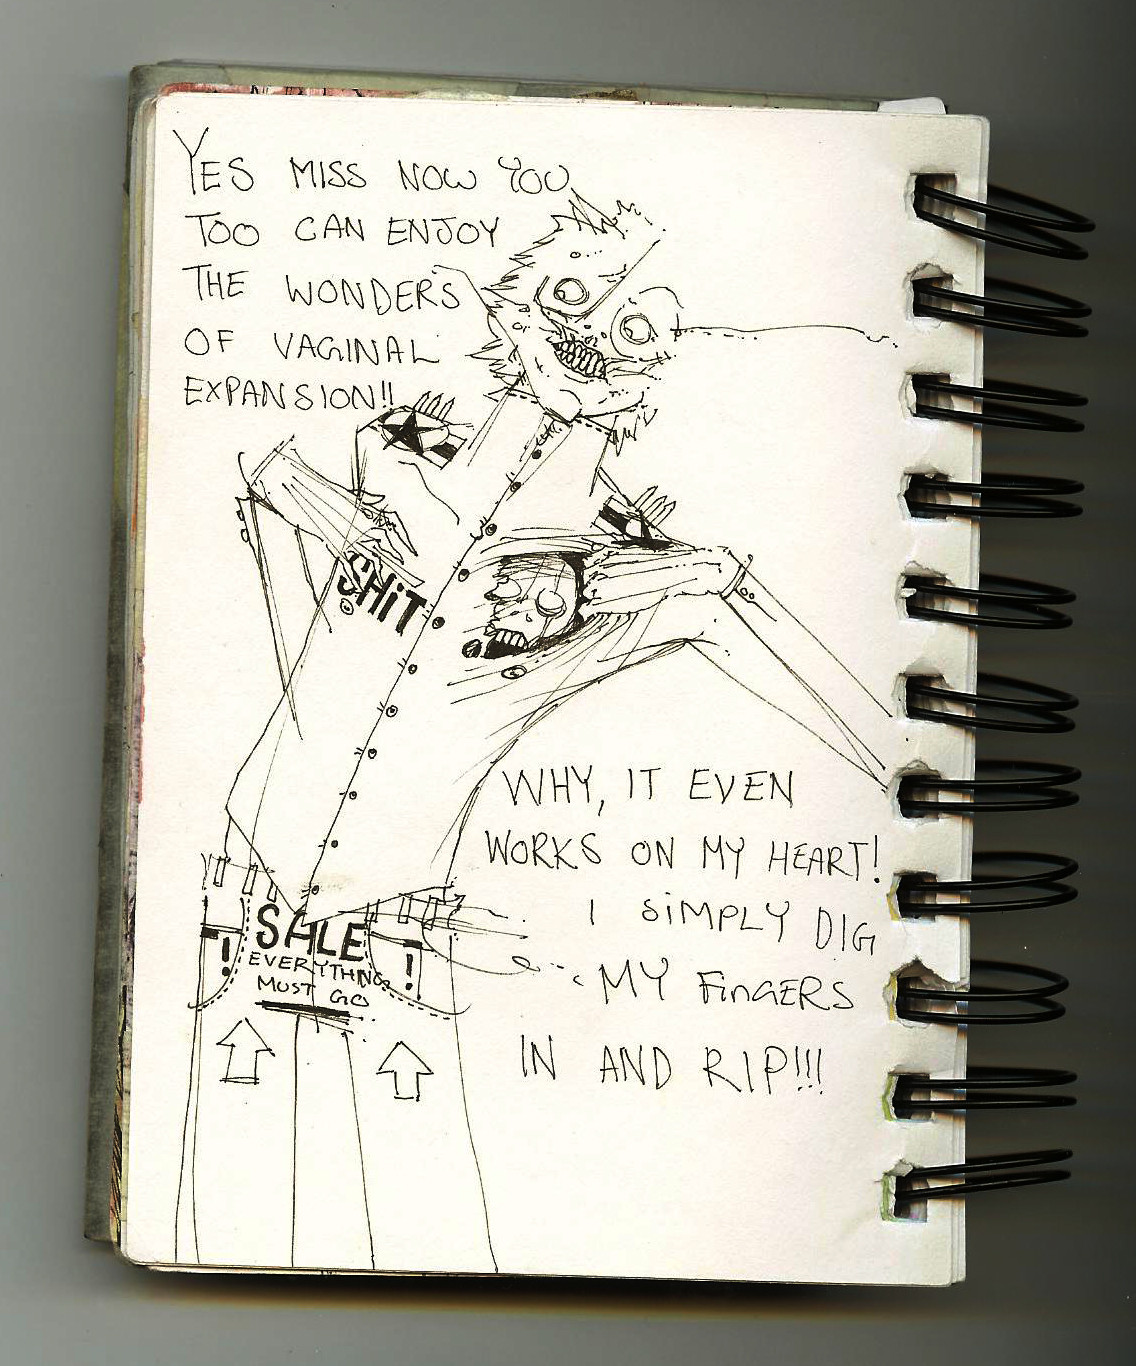 YES MISS NOW YOU
TOO CAN ENJOY
THE WONDERS
OF VAGINAL
EXPANSION!!
SHiT
WHY, IT EVEN
WORKS ON MY HEART!
I SiMPLY DIG
MY FinGERS
IN AND RIP!!!
! SALE !
EVERYTHING
MUST GO